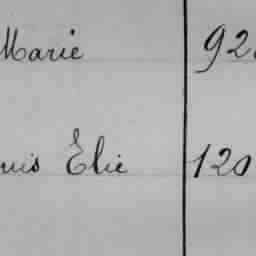 Marie 92
uis Elie 120